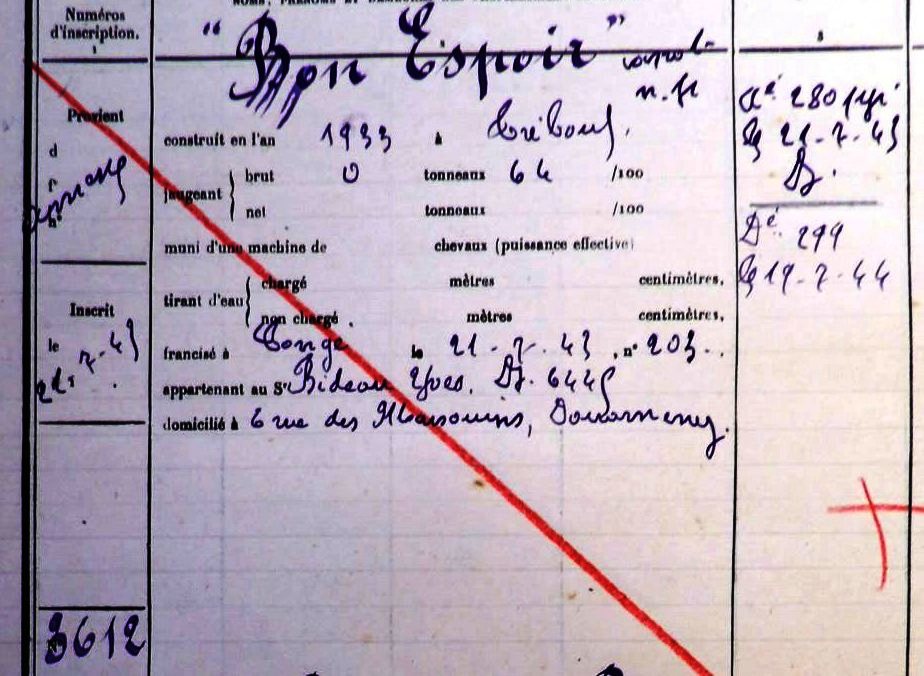 Numéros
d'inscription.
1
Provient
d
f°
n°
Inscrit
le 21-7-43
3612
" Bon Espoir "
n.f.
construit en l'an 1933 à Tréboul.
jaugeant
brut 0 tonneaux 64 /100
net tonneaux /100
muni d'une machine de chevaux (puissance effective)
tirant d'eau
chargé mètres centimètres,
non chargé. mètres centimètres,
francisé à Congé le 21-7-43, n° 203..
appartenant au Sr Bideau Yves. Dz. 6445
domicilié à 6 rue des Marsouins, Douarnenez.
Cé 280
le 21-7-43
Dz.
Dé 299
le 19-7-44